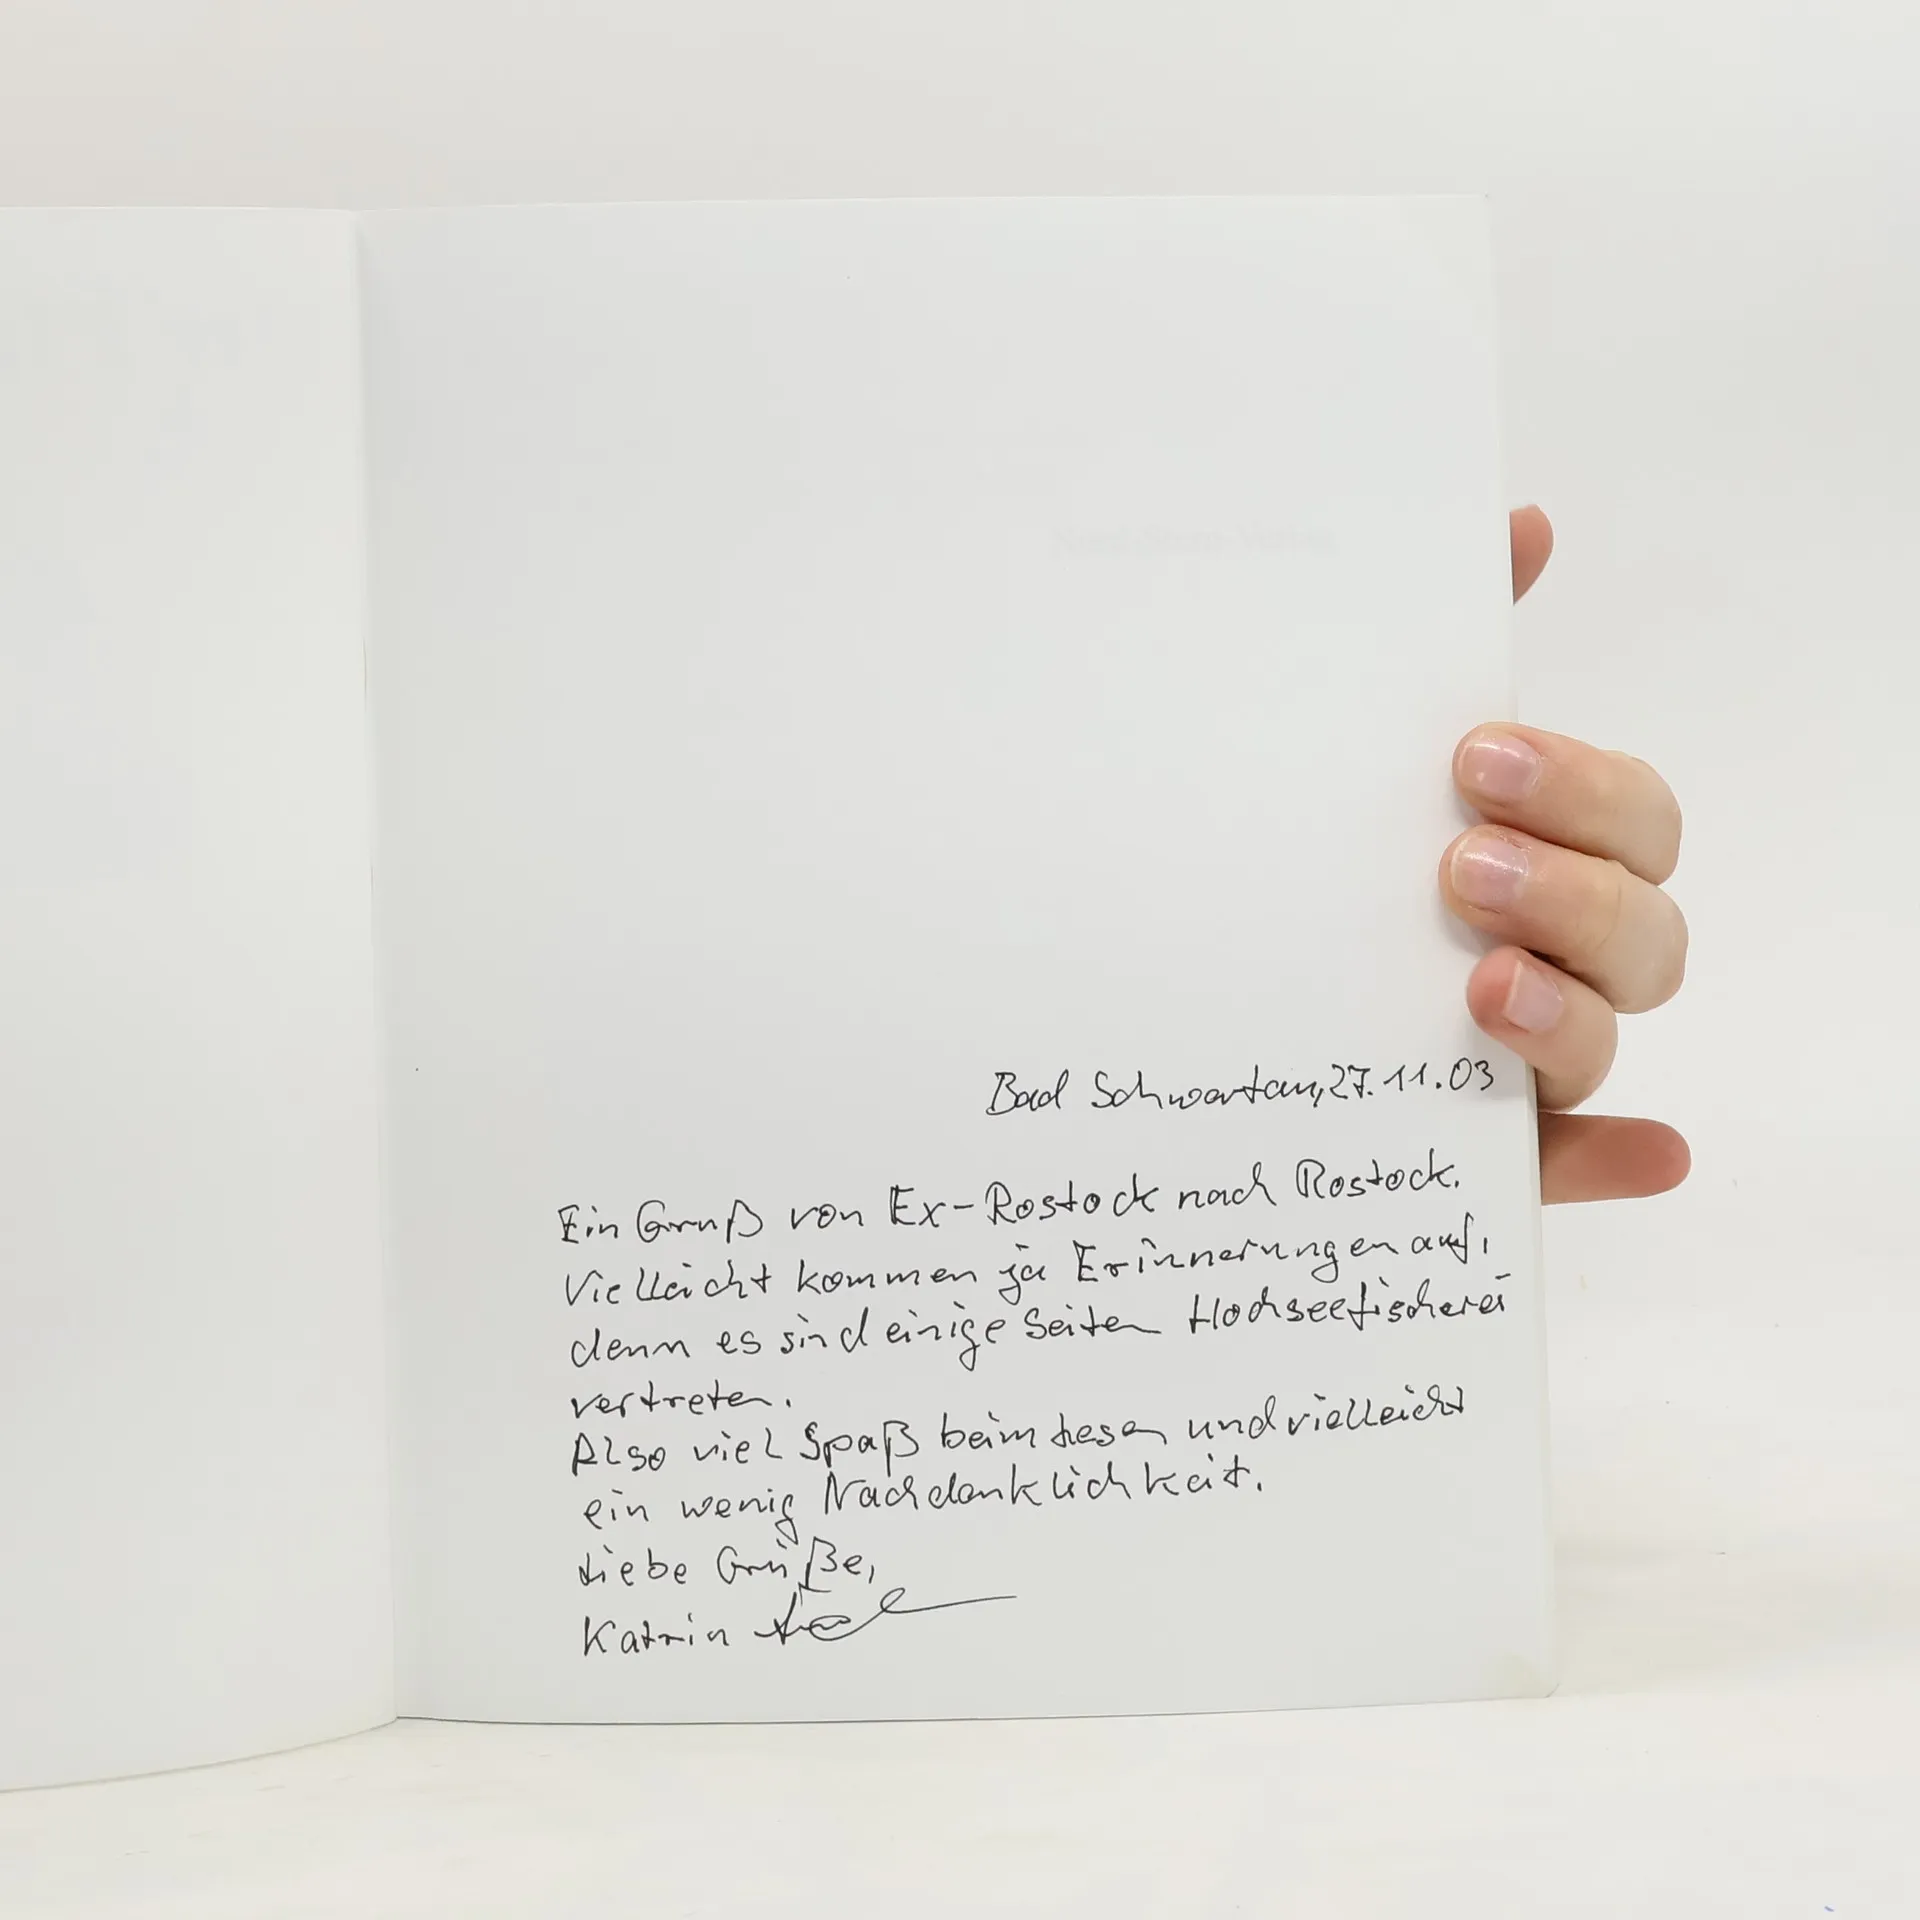 Bad Schwartau, 27.11.03
Ein Gruß von Ex-Rostock nach Rostock.
Vielleicht kommen ja Erinnerungen auf,
denn es sind einige Seiten Hochseefischerei
vertreten.
Also viel Spaß beim Lesen und vielleicht
ein wenig Nachdenklichkeit.
Liebe Grüße,
Katrin